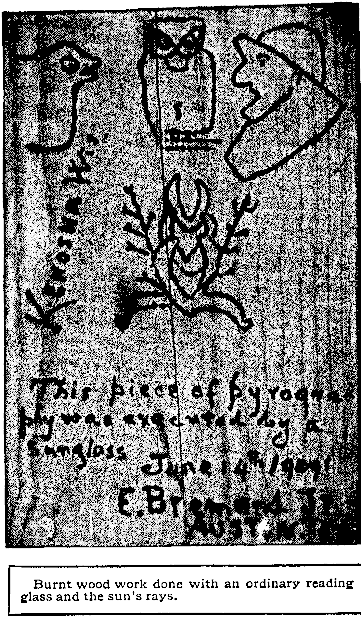 This piece of pyrogra
phy was executed by a
Sunglass
June 14th 1909
E. Bremard
AUSTIN
Burnt wood work done with an ordinary reading
glass and the sun's rays.